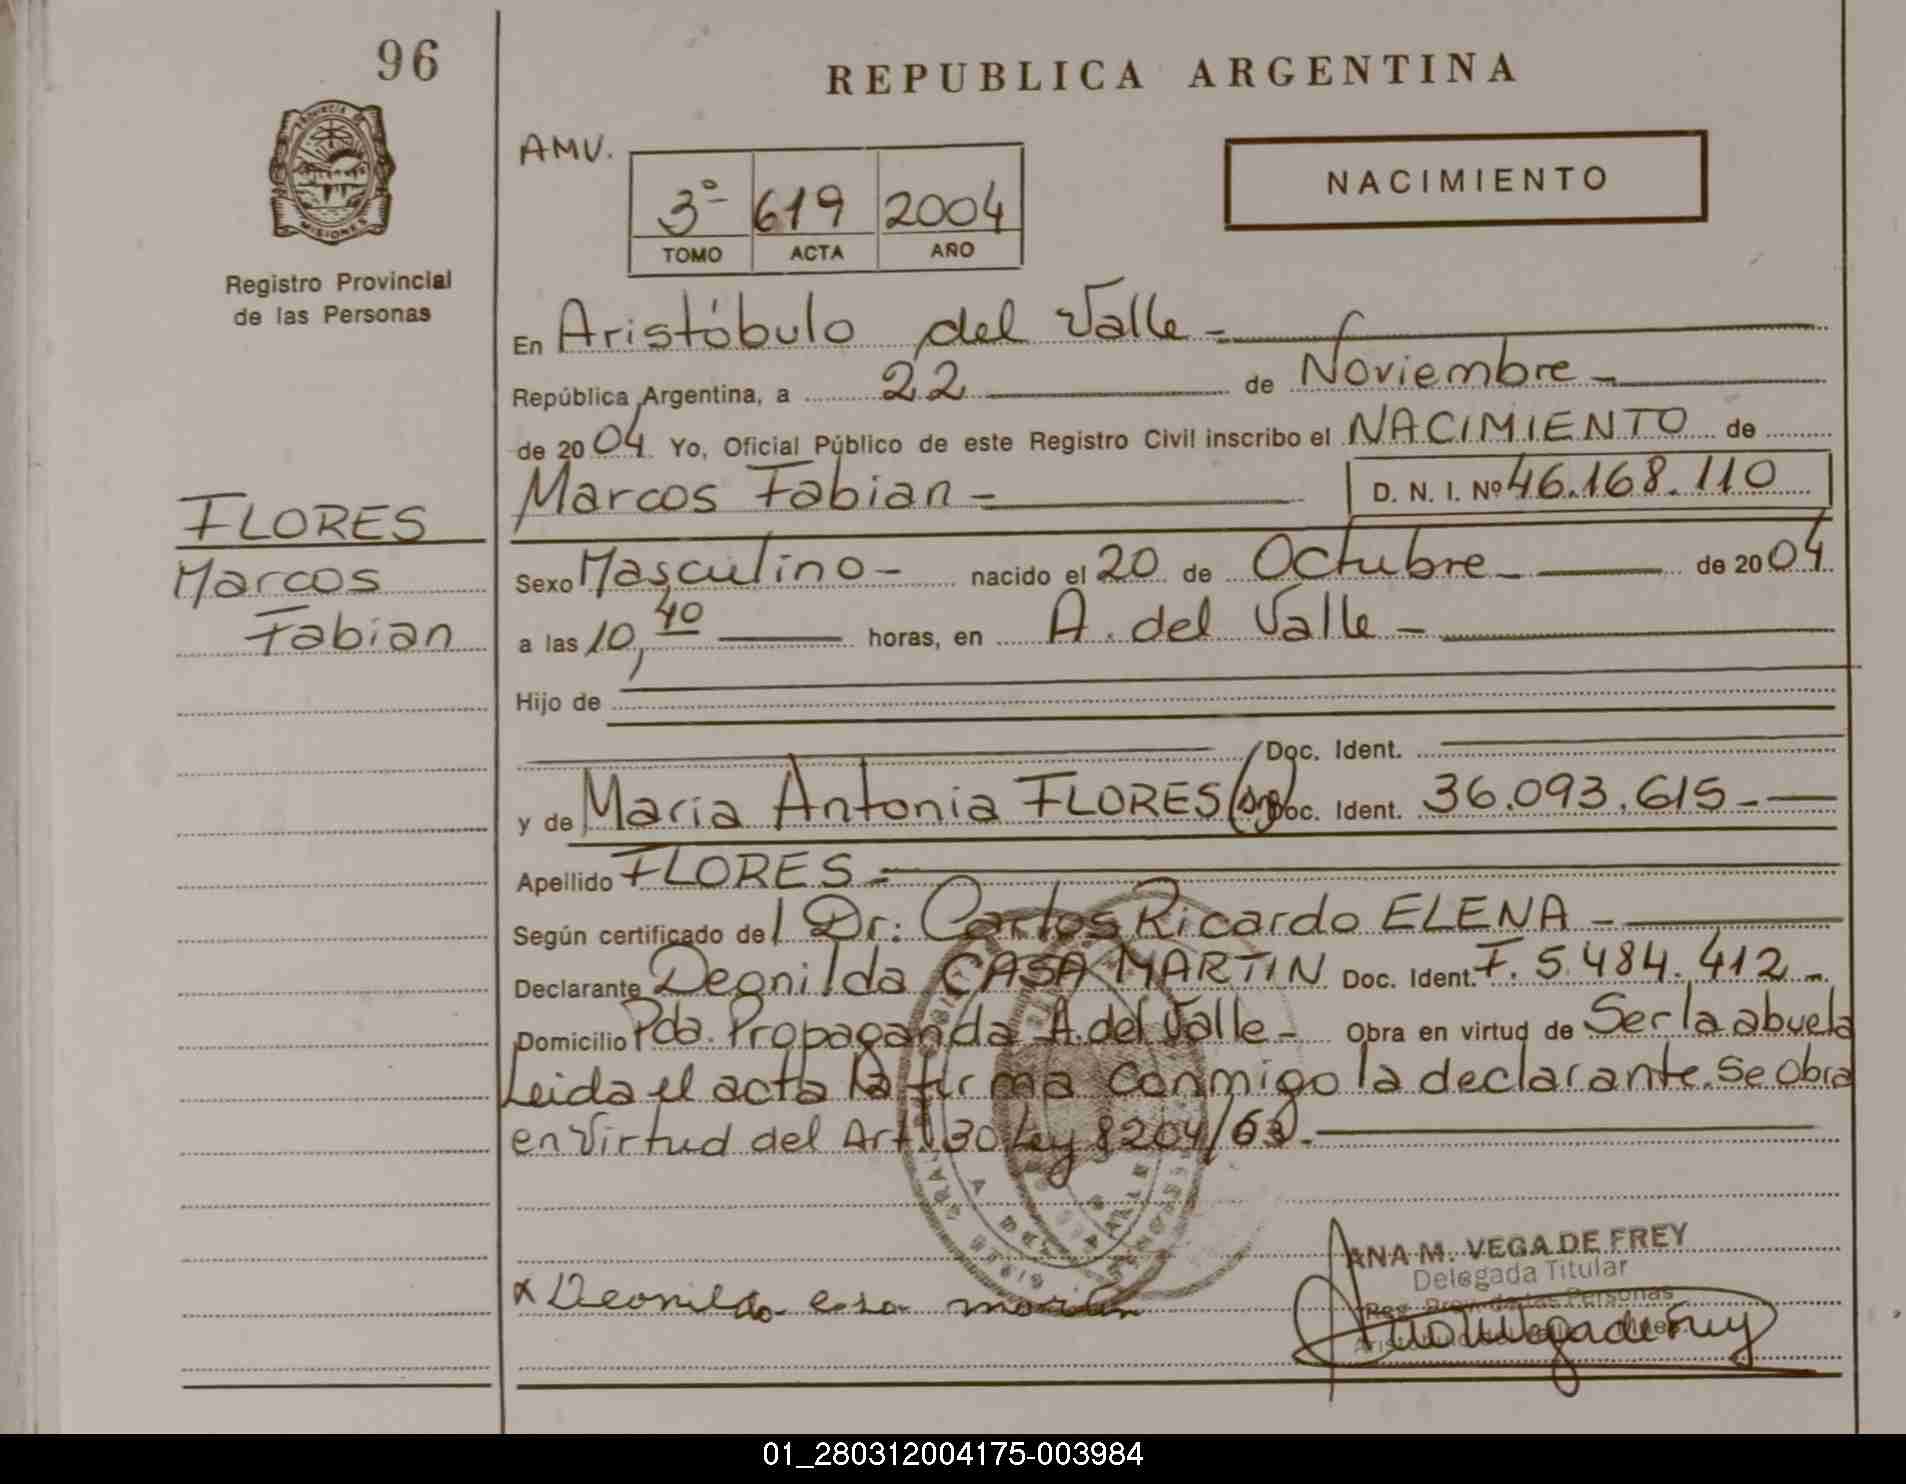 96
REPUBLICA ARGENTINA
PROVINCIA DE
MISIONES
Registro Provincial
de las Personas
AMV.
3º 619 2004
TOMO ACTA AÑO
NACIMIENTO
En Aristóbulo del Valle -
República Argentina, a 22 de Noviembre -
de 2004 Yo, Oficial Público de este Registro Civil inscribo el NACIMIENTO de
Marcos Fabian - D. N. I. Nº 46.168.110
FLORES
Marcos
Fabian
Sexo Masculino - nacido el 20 de Octubre - de 2004
a las 10,40 horas, en A. del Valle -
Hijo de
Doc. Ident.
y de Maria Antonia FLORES (Arg) Doc. Ident. 36.093.615 -
Apellido FLORES -
Según certificado del Dr: Carlos Ricardo ELENA -
Declarante Deonilda CASA MARTIN Doc. Ident. F. 5.484.412 -
Domicilio Pda. Propaganda A. del Valle - Obra en virtud de Ser la abuela
Leida el acta la firma conmigo la declarante. Se obra
en virtud del Art. 30 Ley 8204/63. -
x Deonilda casa
ANA M. VEGA DE FREY
Delegada Titular
Reg. Prov. de las Personas
01_280312004175-003984